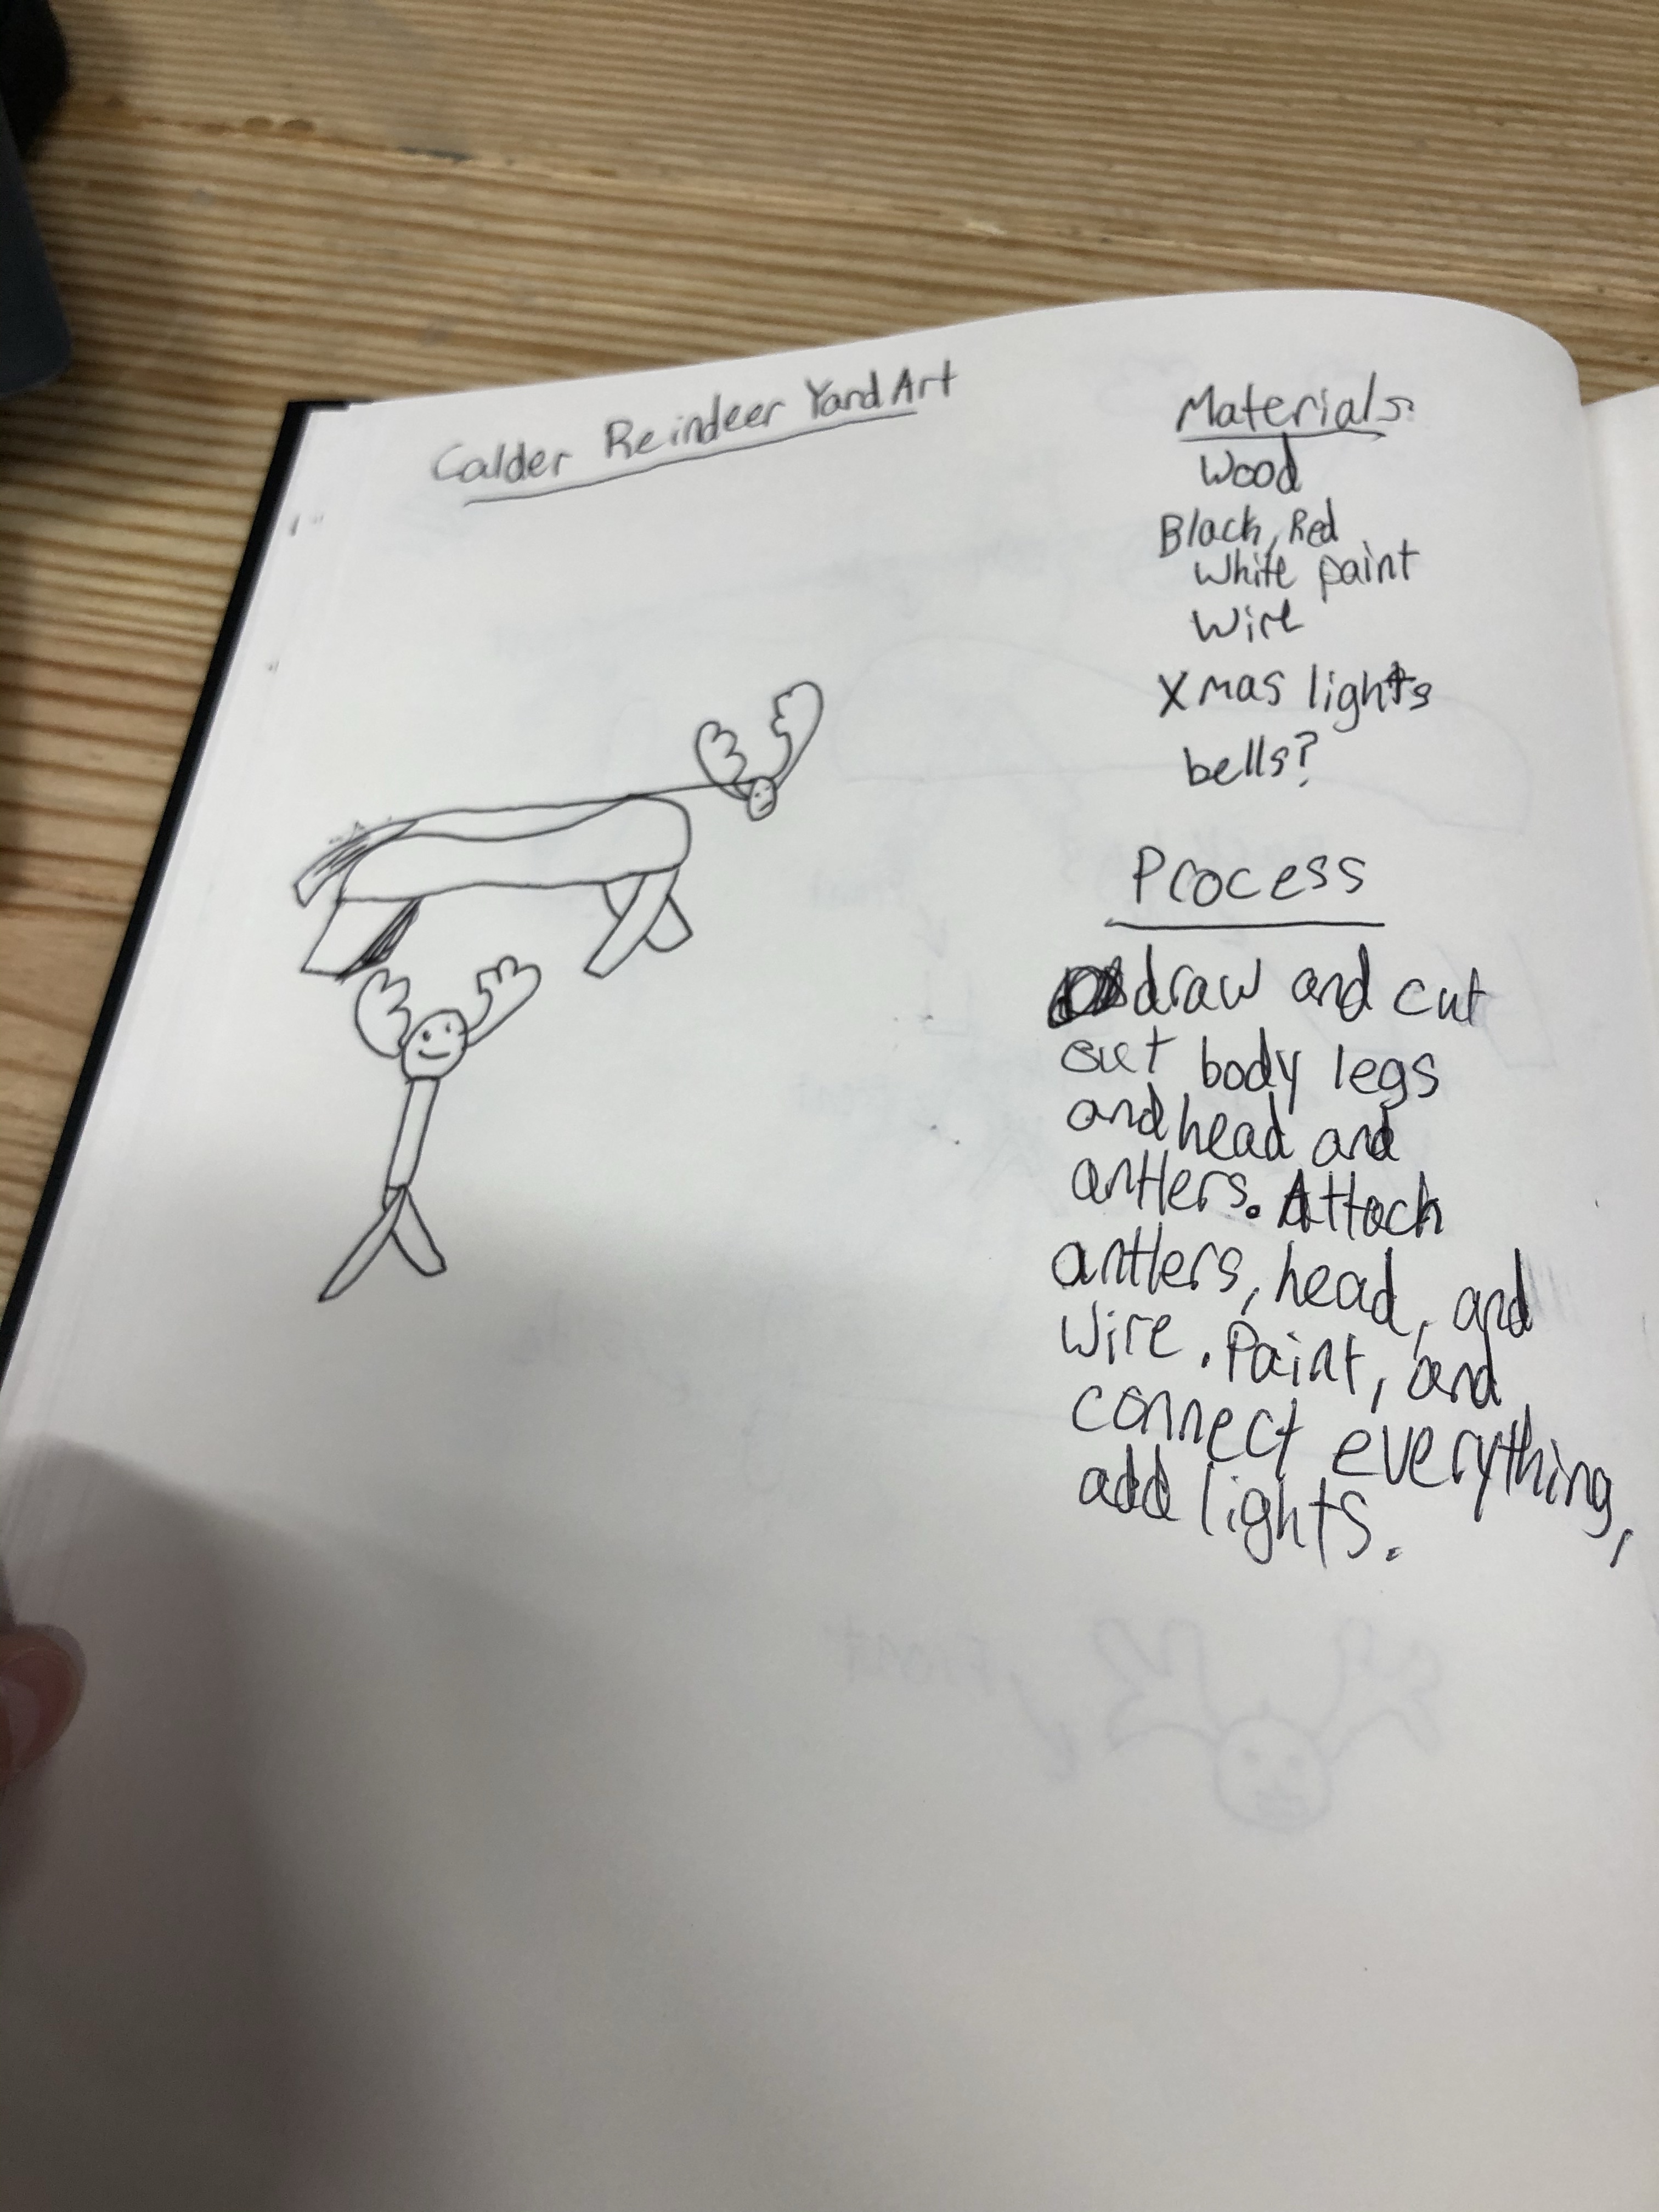 Calder Reindeer Yard Art
Materials:
Wood
Black, Red
White paint
Wire
Xmas lights
bells?
Process
draw and cut
out body legs
and head and
antlers. Attach
antlers, head, and
wire. Paint, and
connect everything,
add lights.
Front